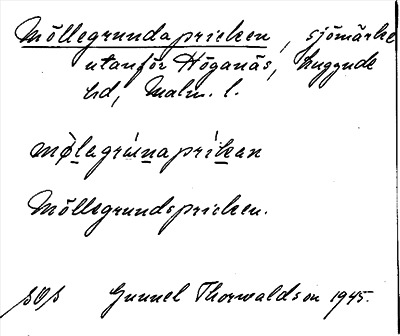 Möllegrundapricken, sjömärke
utanför Höganäs, Luggude
hd, Malm. l.
møl̲egrún̲aprík̲an
Möllegrundspricken.
Gunnel Thorwaldson 1945.